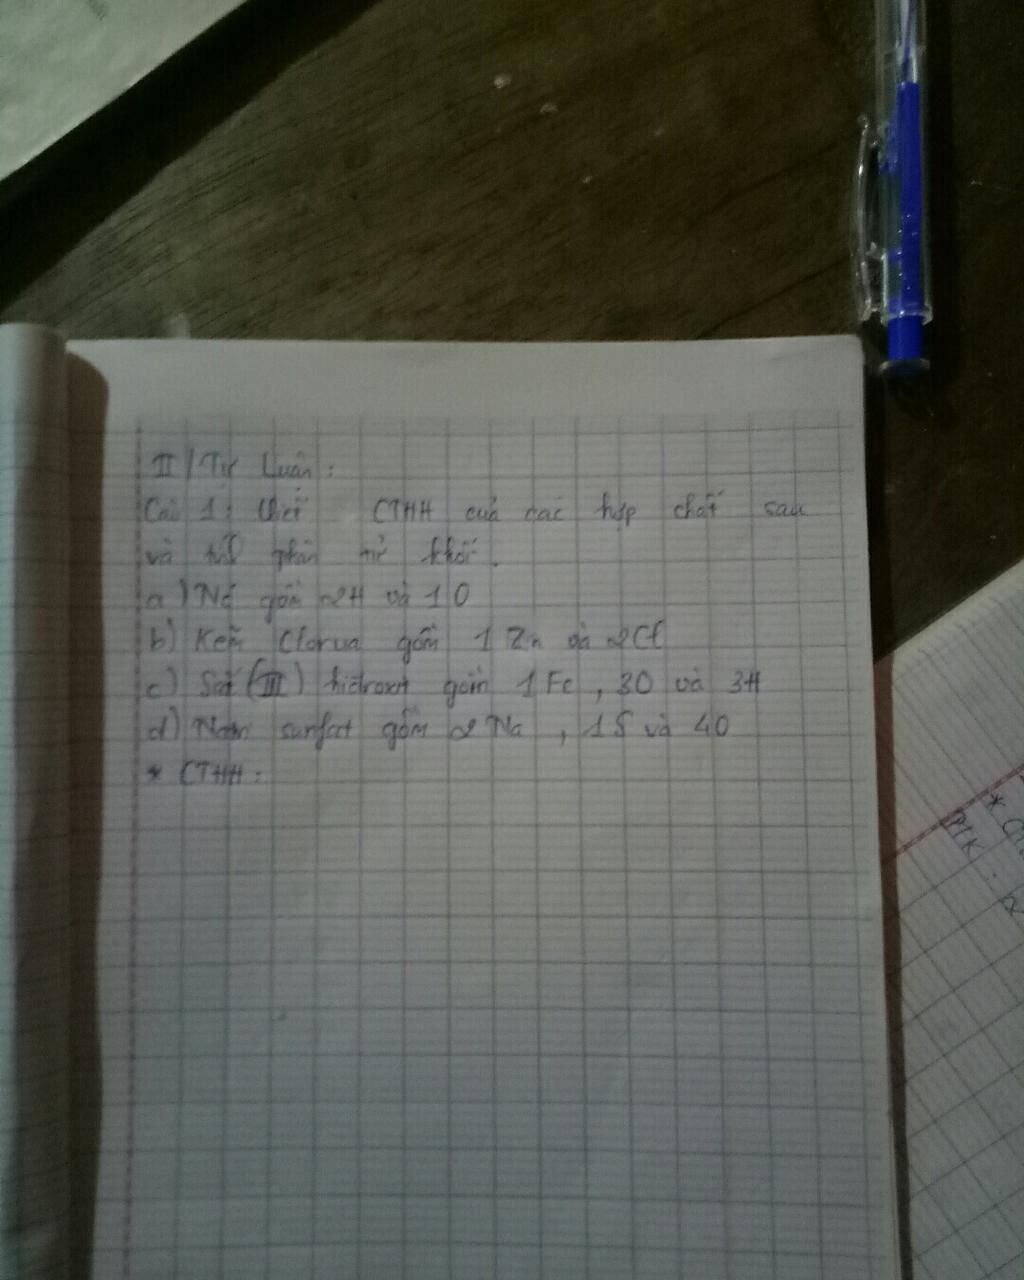 II / Tự Luận :
Câu 1 : Viết CTHH của các hợp chất sau
và tính phân tử khối.
a) Nước gồm 2H và 1O
b) Kẽm Clorua gồm 1 Zn và 2Cl
c) Sắt (III) hiđroxit gồm 1 Fe , 3O và 3H
d) Natri sunfat gồm 2 Na , 1S và 4O
* CTHH :
PTK :